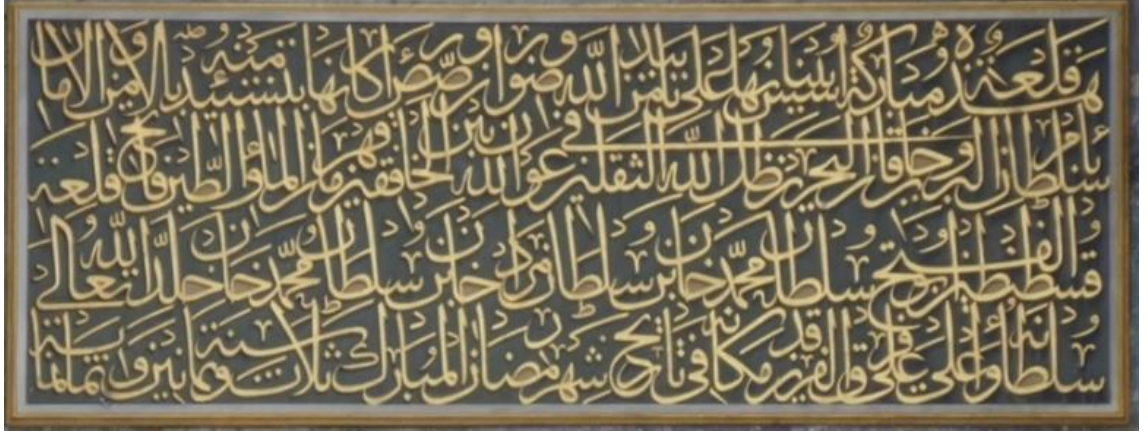 هذه قلعة مباركة اسس بنيانها على تاييد من الله ورضوان ورصص اركانها بتشييد منه بالامن والامان
بامر سلطان البرين وخاقان البحرين ظل الله في الثقلين عون الله بين الخافقين قهرمان الماء والطين فاتح قلعة
قسطنطنية ابو الفتح سلطان محمد خان بن سلطان مراد خان بن سلطان محمد خان خلد الله تعالى
سلطانه واعلى على فرق الفرقدين مكانه في تاريخ شهر رمضان المبارك سنة ثلاث وثمانين وثمانمائة